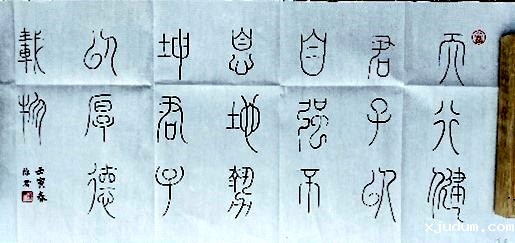 天行健
君子以
自強不
息地勢
坤君子
以厚德
載物
壬寅春
xjudum.com